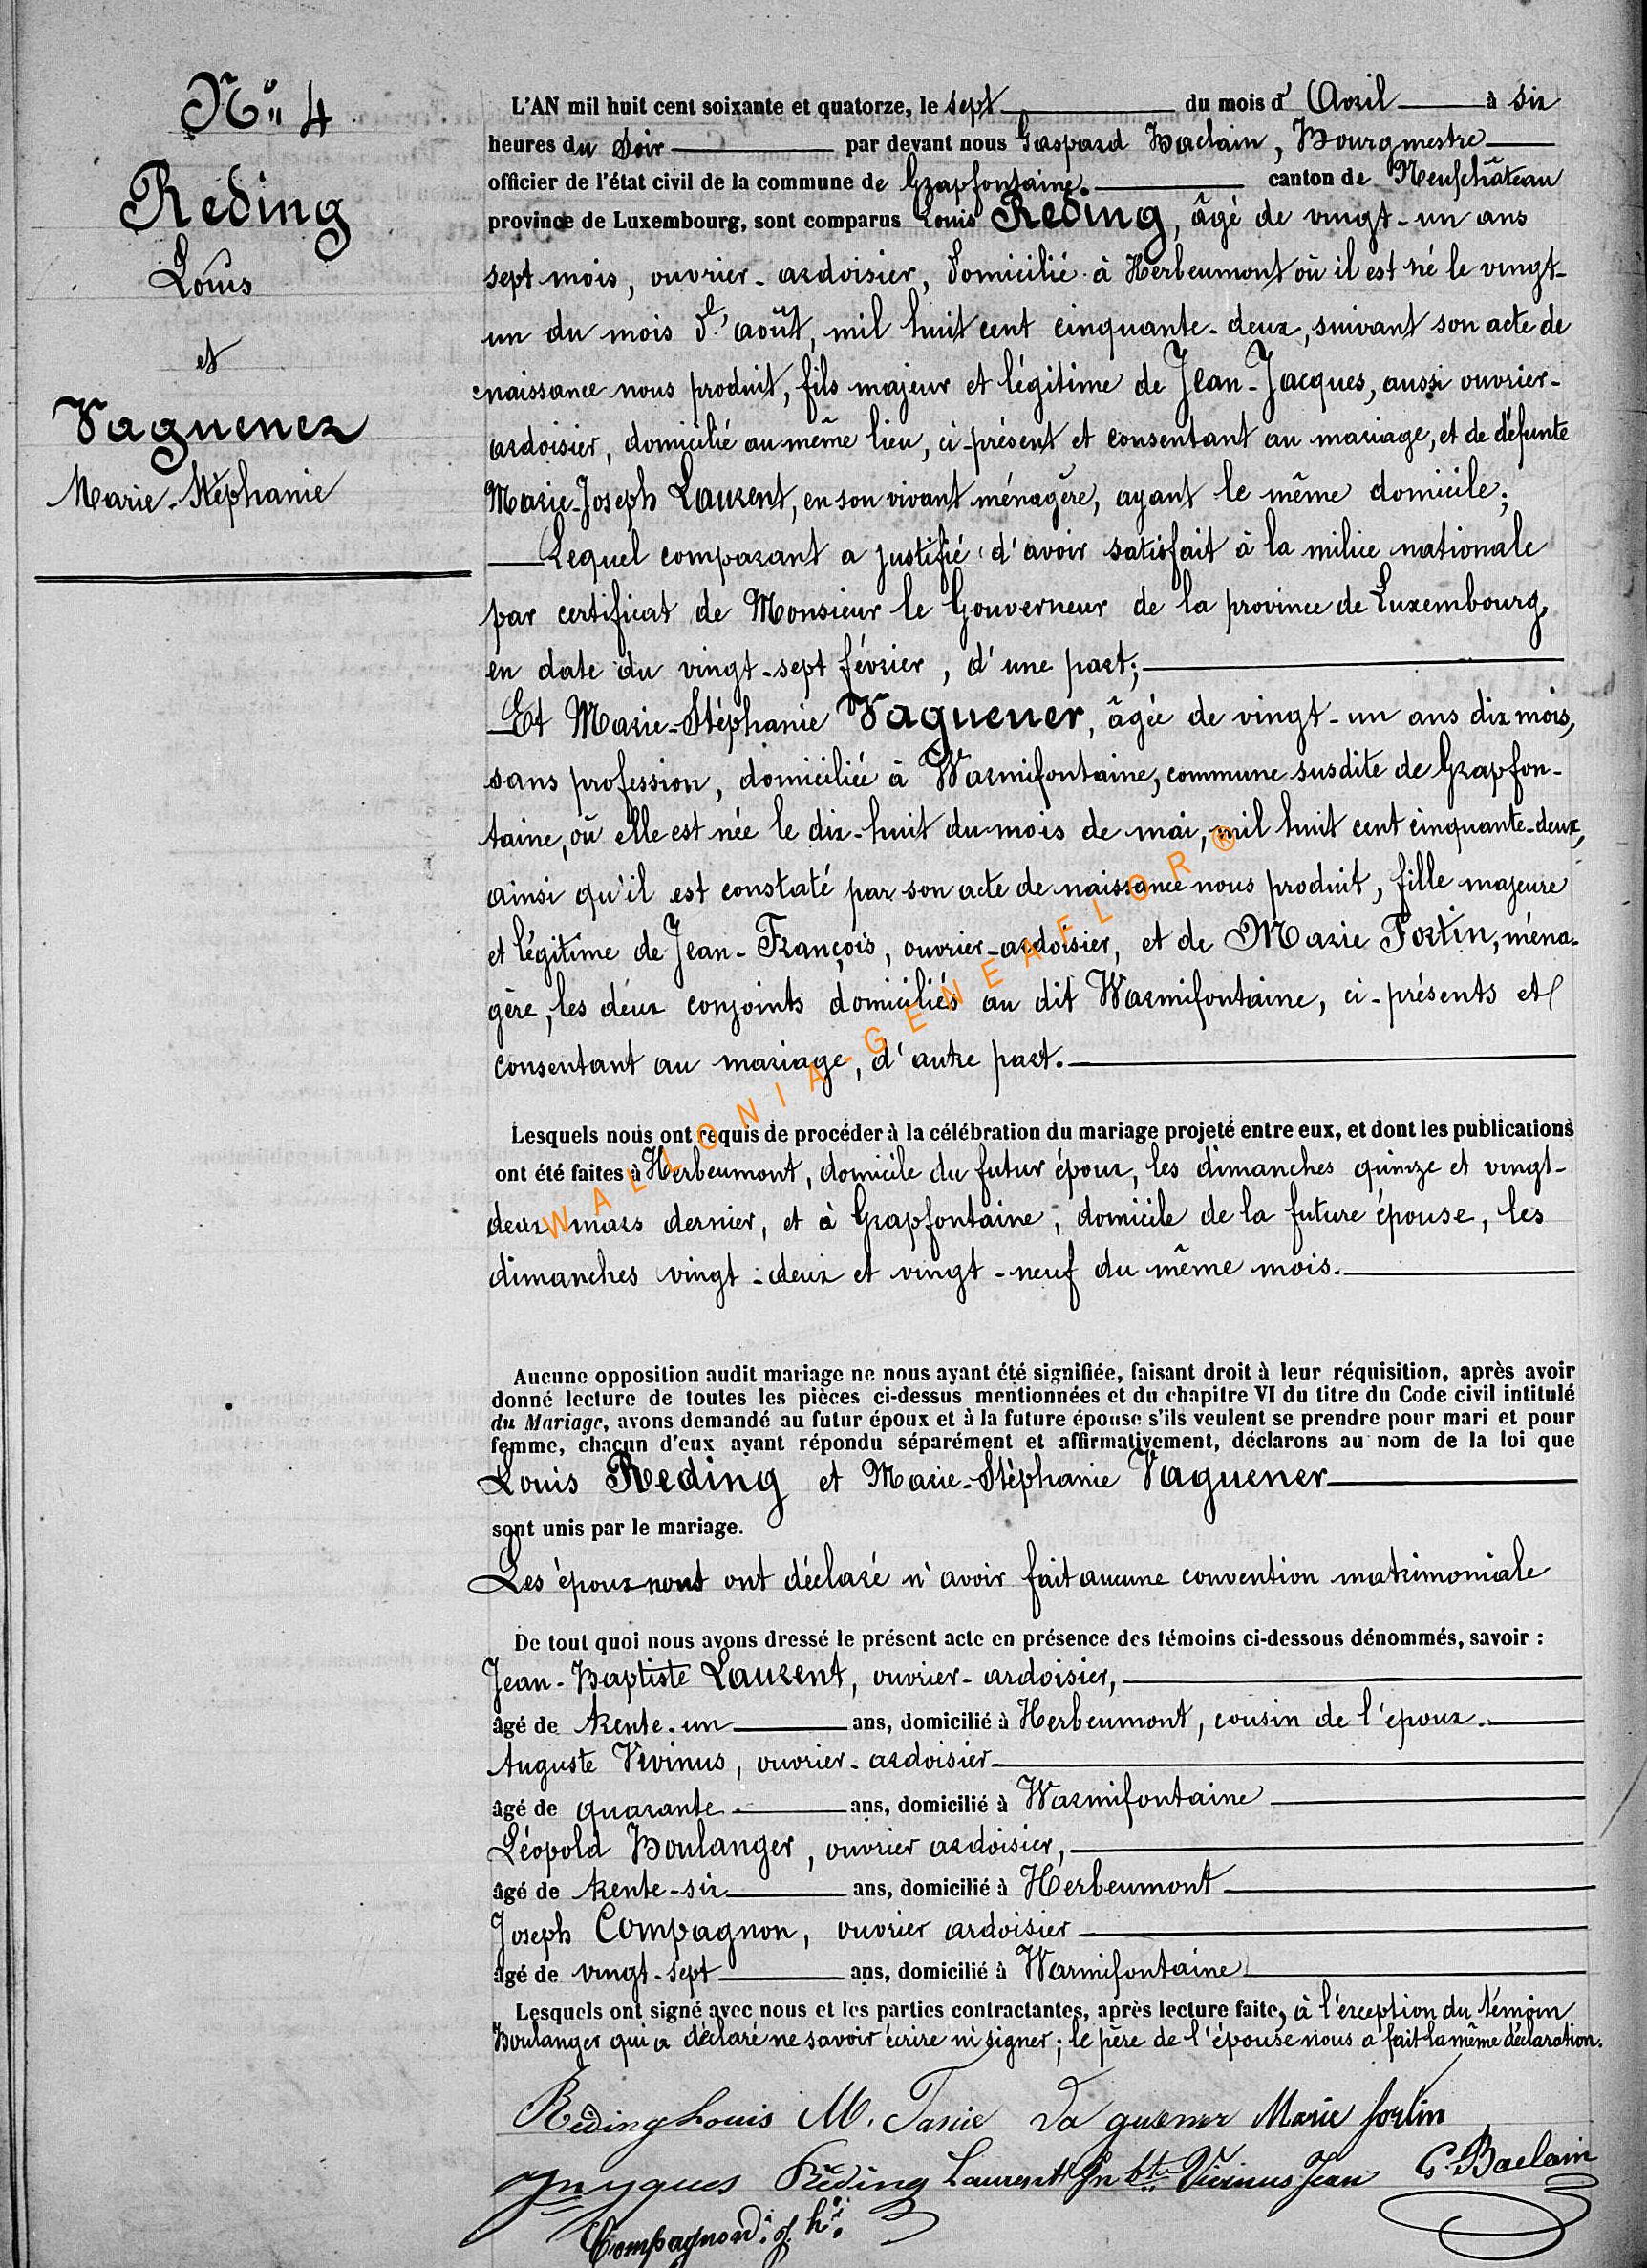 N° 4
Reding
Louis
et
Vaguener
Marie-Stéphanie
L'AN mil huit cent soixante et quatorze, le sept du mois d' Avril à six
heures du soir par devant nous Gaspard Baclain, Bourgmestre
officier de l'état civil de la commune de Grapfontaine. canton de Neufchâteau
province de Luxembourg, sont comparus Louis Reding, âgé de vingt-un ans
sept mois, ouvrier-ardoisier, domicilié à Herbeumont où il est né le vingt-
un du mois d'août, mil huit cent cinquante-deux, suivant son acte de
naissance nous produit, fils majeur et légitime de Jean-Jacques, aussi ouvrier-
ardoisier, domicilié au même lieu, ci-présent et consentant au mariage, et de défunte
Marie-Joseph Laurent, en son vivant ménagère, ayant le même domicile;
Lequel comparant a justifié d'avoir satisfait à la milice nationale
par certificat de Monsieur le Gouverneur de la province de Luxembourg,
en date du vingt-sept février, d'une part;
Et Marie-Stéphanie Vaguener, âgée de vingt-un ans dix mois,
sans profession, domiciliée à Warmifontaine, commune susdite de Grapfon-
taine, où elle est née le dix-huit du mois de mai, mil huit cent cinquante-deux,
ainsi qu'il est constaté par son acte de naissance nous produit, fille majeure
et légitime de Jean-François, ouvrier-ardoisier, et de Marie Fortin, ména-
gère, les deux conjoints domiciliés au dit Warmifontaine, ci-présents et
consentant au mariage, d'autre part.
Lesquels nous ont requis de procéder à la célébration du mariage projeté entre eux, et dont les publications
ont été faites à Herbeumont, domicile du futur époux, les dimanches quinze et vingt-
deux mars dernier, et à Grapfontaine, domicile de la future épouse, les
dimanches vingt-deux et vingt-neuf du même mois.
WALLONIA-GENEAFLOR®
Aucune opposition audit mariage ne nous ayant été signifiée, faisant droit à leur réquisition, après avoir
donné lecture de toutes les pièces ci-dessus mentionnées et du chapitre VI du titre du Code civil intitulé
du Mariage, avons demandé au futur époux et à la future épouse s'ils veulent se prendre pour mari et pour
femme, chacun d'eux ayant répondu séparément et affirmativement, déclarons au nom de la loi que
Louis Reding et Marie-Stéphanie Vaguener
sont unis par le mariage.
Les époux nous ont déclaré n'avoir fait aucune convention matrimoniale
De tout quoi nous avons dressé le présent acte en présence des témoins ci-dessous dénommés, savoir :
Jean-Baptiste Laurent, ouvrier-ardoisier,
âgé de trente-un ans, domicilié à Herbeumont, cousin de l'époux.
Auguste Vivinus, ouvrier-ardoisier
âgé de quarante ans, domicilié à Warmifontaine
Léopold Boulanger, ouvrier ardoisier,
âgé de trente-six ans, domicilié à Herbeumont
Joseph Compagnon, ouvrier ardoisier
âgé de vingt-sept ans, domicilié à Warmifontaine
Lesquels ont signé avec nous et les parties contractantes, après lecture faite, à l'exception du témoin
Boulanger qui a déclaré ne savoir écrire ni signer; le père de l'épouse nous a fait la même déclaration.
Réding Louis M. Vaguener Marie fortin
Réding Laurent Jn bte Vivinus Jean G. Baclain
Compagnon